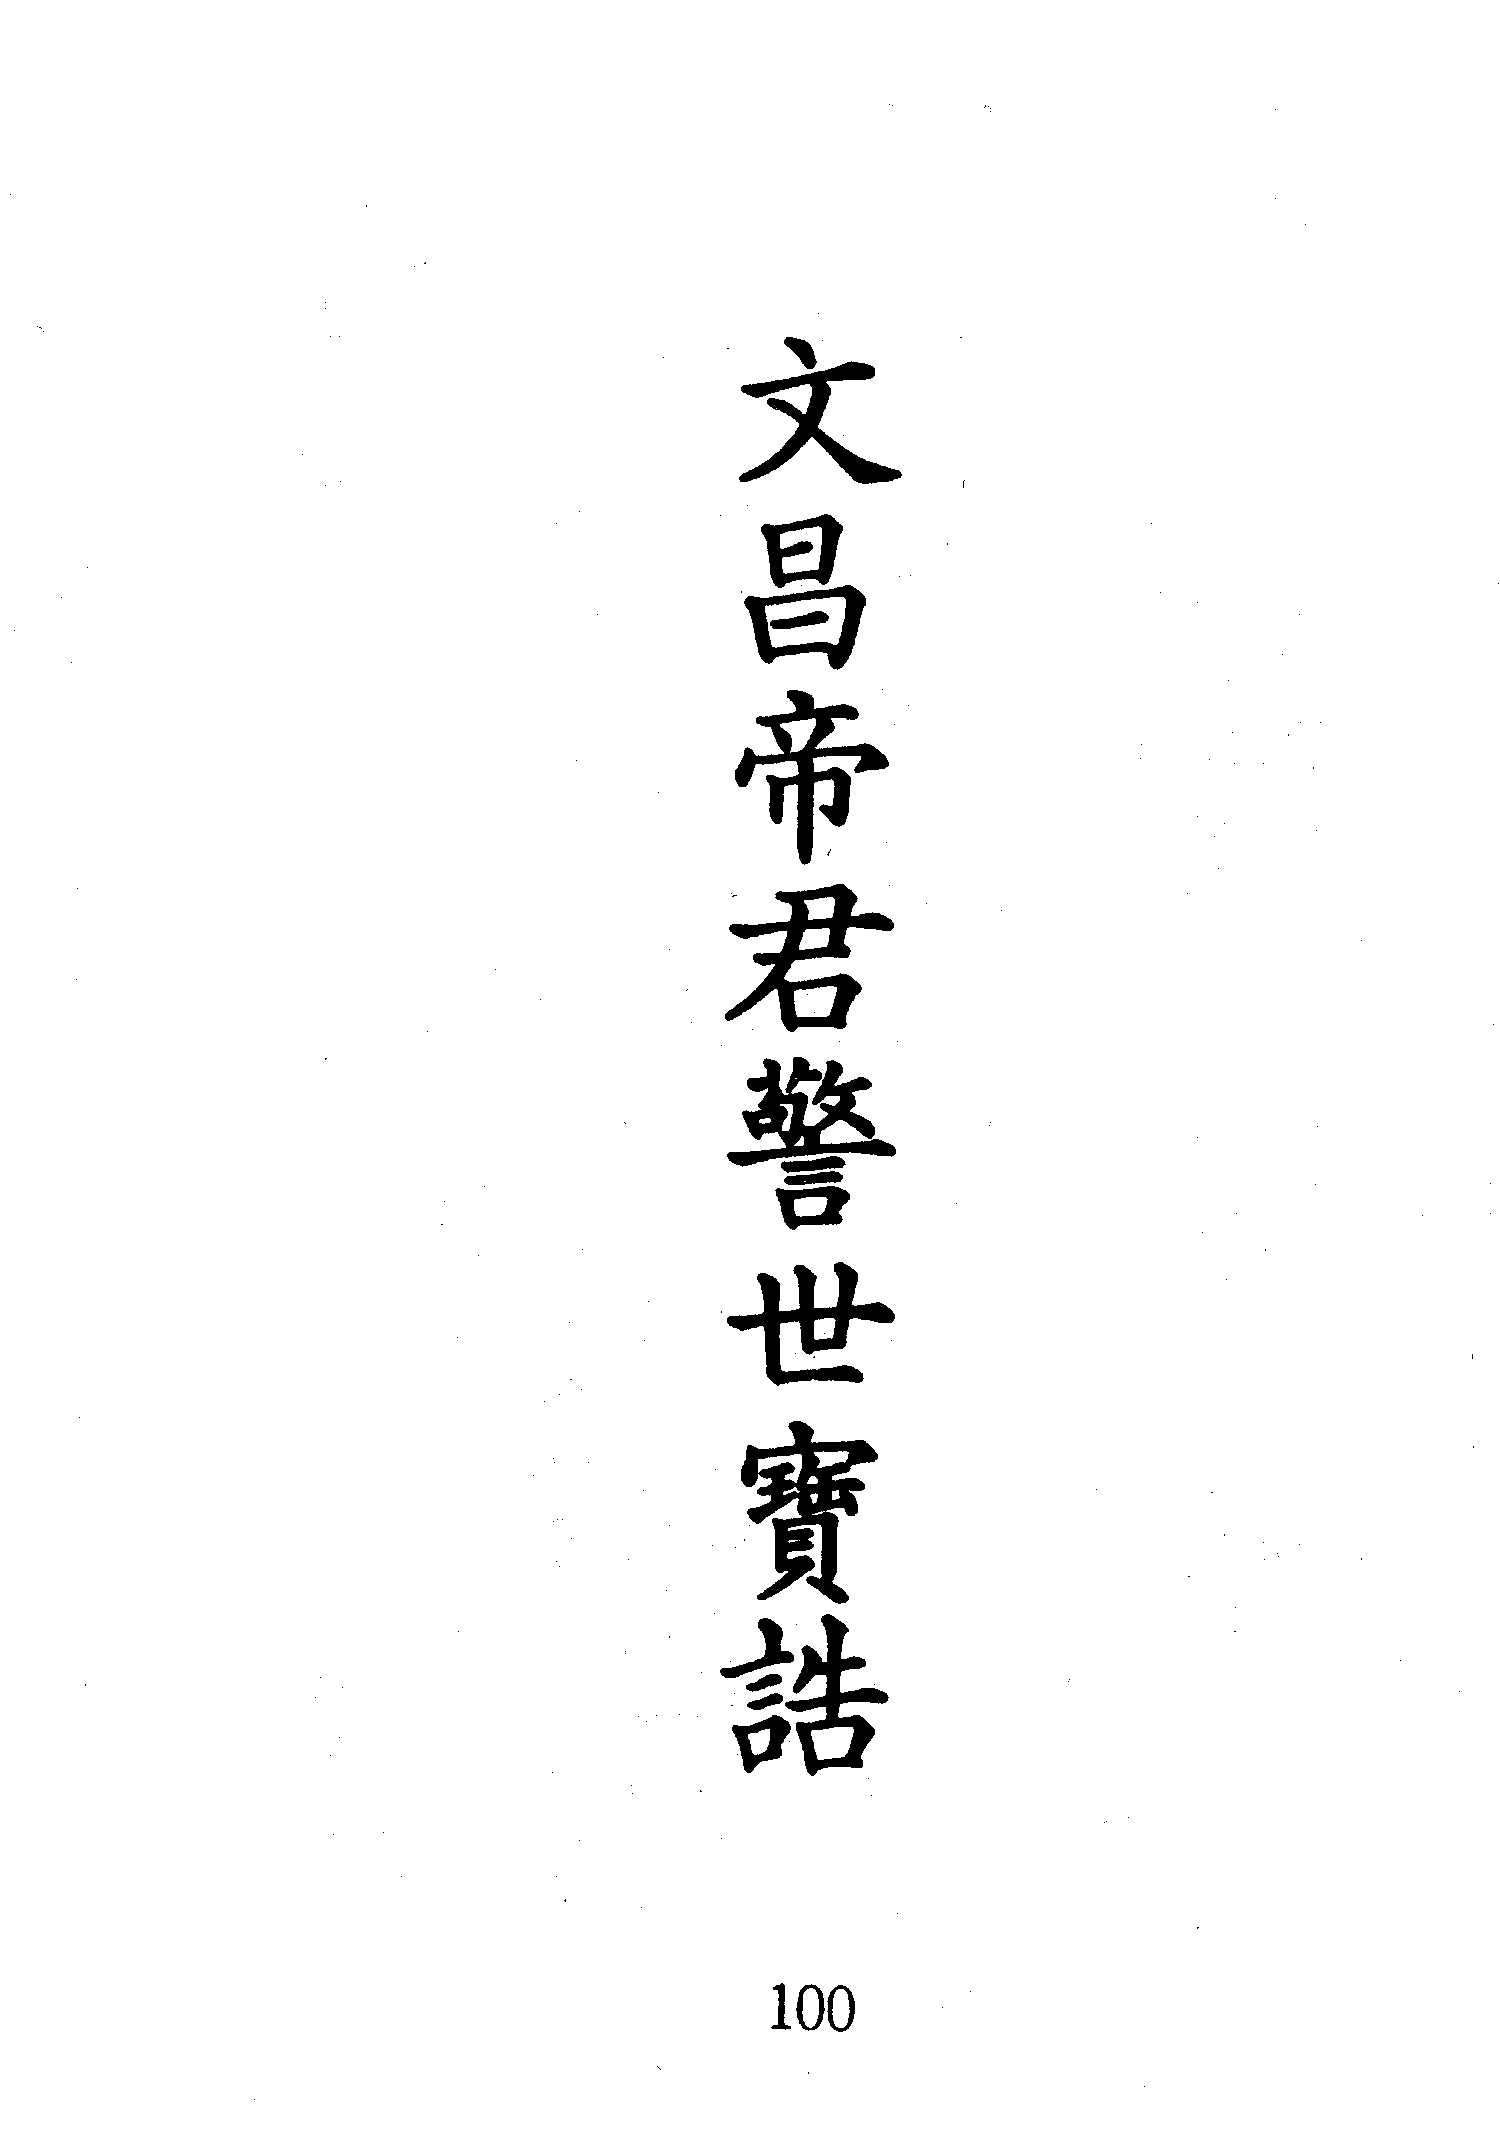 文昌帝君警世寶誥
100